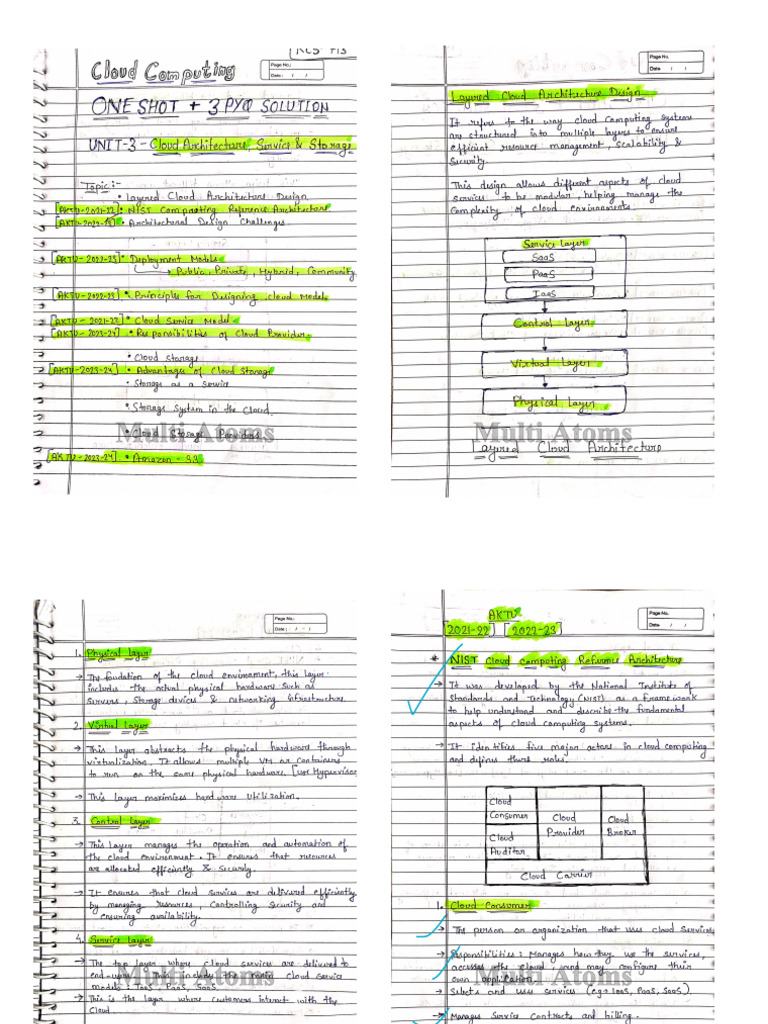 KCS-713
Cloud Computing
Page No.:
Date: / /
ONE SHOT + 3 PYQ SOLUTION
UNIT-3 - Cloud Architecture, Service & Storage
Topic:-
• Layered Cloud Architecture Design
[AKTU-2021-22] • NIST Computing Reference Architecture
• Architectural Design Challenges
[AKTU-2022-23] • Deployment Models
→ Public, Private, Hybrid, Community
[AKTU-2022-23] • Principles for Designing cloud Model
[AKTU-2021-22] • Cloud Service Model
[AKTU-2023-24] • Responsibilities of Cloud Provider
• Cloud Storage
[AKTU-2023-24] • Advantages of Cloud Storage
• Storage as a Service
• Storage System in the Cloud.
• Cloud Storage Providers
Multi Atoms
[AKTU-2023-24] • Amazon - S3
Page No.
Date / /
Layered Cloud Architecture Design
It refers to the way cloud Computing systems
are structured into multiple layers to ensure
efficient resource management, Scalability &
Security.
This design allows different aspects of cloud
services to be modular, helping manage the
Complexity of cloud environments.
Service Layer
SaaS
PaaS
IaaS
Control Layer
Virtual Layer
Physical Layer
Multi Atoms
Layered Cloud Architecture
Page No.:
Date: / /
1. Physical Layer
→ The foudation of the cloud environment, this layer
includes the actual physical hardware such as
servers, Storage devices & networking infrastructure.
2. Virtual Layer
→ This layer abstracts the physical hardware through
virtualization. It allows multiple VM or Containers
to run on the same physical hardware. [use Hypervisor
→ This Layer maximizes hardware utilization.
3. Control Layer
→ This layer manages the operation and automation of
the cloud environment. It ensures that resources
are allocated efficiently & Securely.
→ It ensures that cloud services are delivered efficiently
by managing resources, Controlling Security and
ensuring availability.
4. Service Layer
→ The top layer where cloud services are delivered to
end-users. This include the main cloud service
models: IaaS, PaaS, SaaS.
Multi Atoms
→ This is the layer where customers interact with the
Cloud.
AKTU
[2021-22] [2022-23]
Page No.
Date / /
* NIST Cloud Computing Reference Architecture
→ It was developed by the National Institute of
Standards and Technology (NIST) as a framework
to help understand and describe the fundamental
aspects of cloud computing systems.
→ It identifies five major actors in cloud computing
and defines there roles.
Cloud Consumer
Cloud Auditor
Cloud Provider
Cloud Broker
Cloud Carrier
1. Cloud Consumer
→ The person or organization that uses Cloud Services
→ Responsibilities: Manages how they use the services,
accesses the cloud, and may configure their
own application.
Multi Atoms
→ Selects and uses services (e.g→ IaaS, PaaS, SaaS).
→ Manages service contracts and billing.